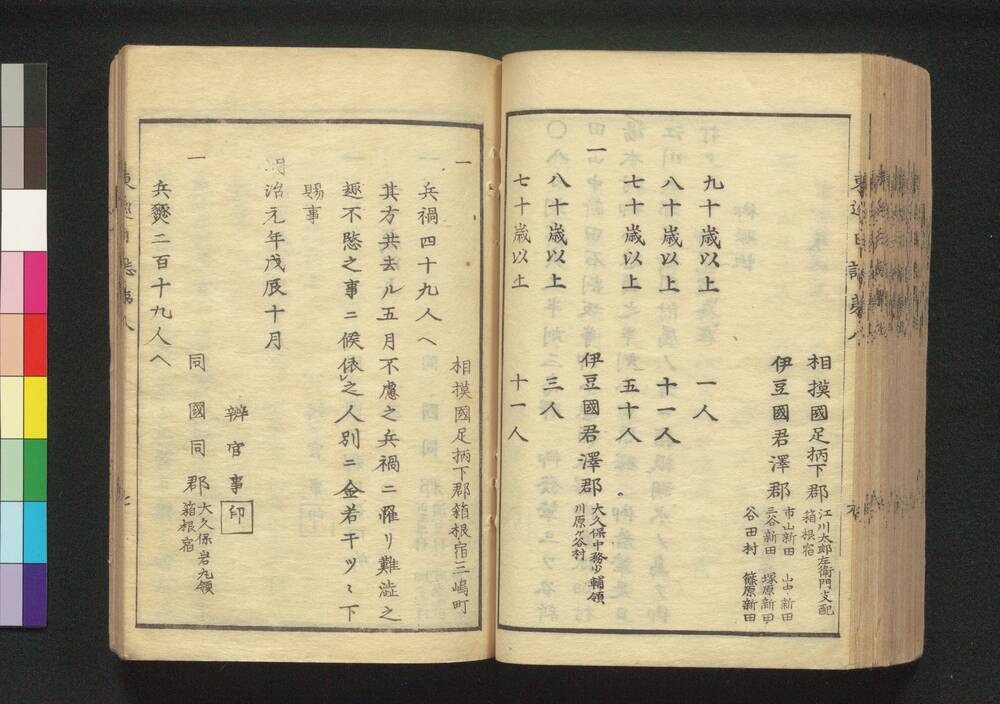 相摸國足柄下郡 江川太郎左衛門支配
箱根宿
伊豆國君澤郡 市山新田 山中新田
三谷新田 塚原新田
谷田村 篠原新田
九十歳以上 一人
八十歳以上 十一人
七十歳以上 五十人
一 伊豆國君澤郡 大久保中務少輔領
川原ヶ谷村
八十歳以上 三人
七十歳以上 十一人
一 相摸國足柄下郡箱根宿三嶋町
兵禍四十九人ヘ
其方共去ル五月不慮之兵禍ニ罹リ難澁之
趣不愍之事ニ候依之人別ニ金若干ツヽ下
賜事
明治元年戊辰十月
辨官事 印
一 同國同郡 大久保岩丸領
箱根宿
兵燹二百十九人ヘ